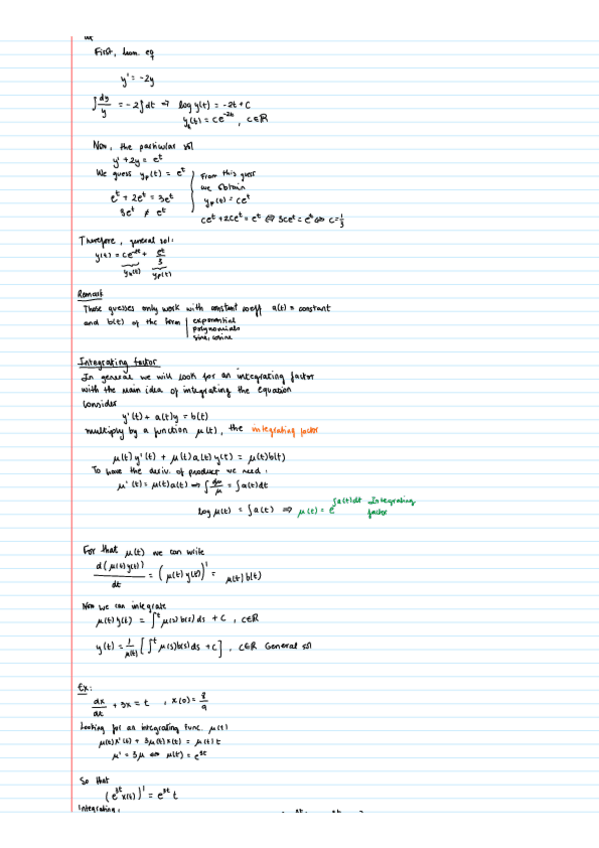 First, hom. eq
y' = -2y
∫ dy/y = -2∫dt ⇒ log y(t) = -2t + C
y_h(t) = ce^{-2t}, c∈R
Now, the particular sol
y' + 2y = e^t
We guess y_p(t) = e^t
e^t + 2e^t = 3e^t
3e^t ≠ e^t
From this guess
we obtain
y_p(t) = ce^t
ce^t + 2ce^t = e^t ⇔ 3ce^t = e^t ⇔ c = 1/3
Therefore, general sol:
y(t) = ce^{-2t} + e^t/3
y_h(t) y_p(t)
Remark
These guesses only work with constant coeff a(t) = constant
and b(t) of the form exponential
polynomials
sine, cosine
Integrating factor
In general we will look for an integrating factor
with the main idea of integrating the equation
Consider
y'(t) + a(t)y = b(t)
multiply by a function μ(t), the integrating factor
μ(t)y'(t) + μ(t)a(t)y(t) = μ(t)b(t)
To have the deriv. of product we need:
μ'(t) = μ(t)a(t) ⇒ ∫ dμ/μ = ∫a(t)dt
log μ(t) = ∫a(t) ⇒ μ(t) = e^{∫a(t)dt} Integrating
factor
For that μ(t) we can write
d(μ(t)y(t))/dt = (μ(t)y(t))' = μ(t)b(t)
Now we can integrate
μ(t)y(t) = ∫^t μ(s)b(s)ds + C, c∈R
y(t) = 1/μ(t) [∫^t μ(s)b(s)ds + C], c∈R General sol
Ex:
dx/dt + 3x = t , x(0) = 8/9
Looking for an integrating func. μ(t)
μ(t)x'(t) + 3μ(t)x(t) = μ(t)t
μ' = 3μ ⇔ μ(t) = e^{3t}
So that
(e^{3t}x(t))' = e^{3t}t
Integrating,